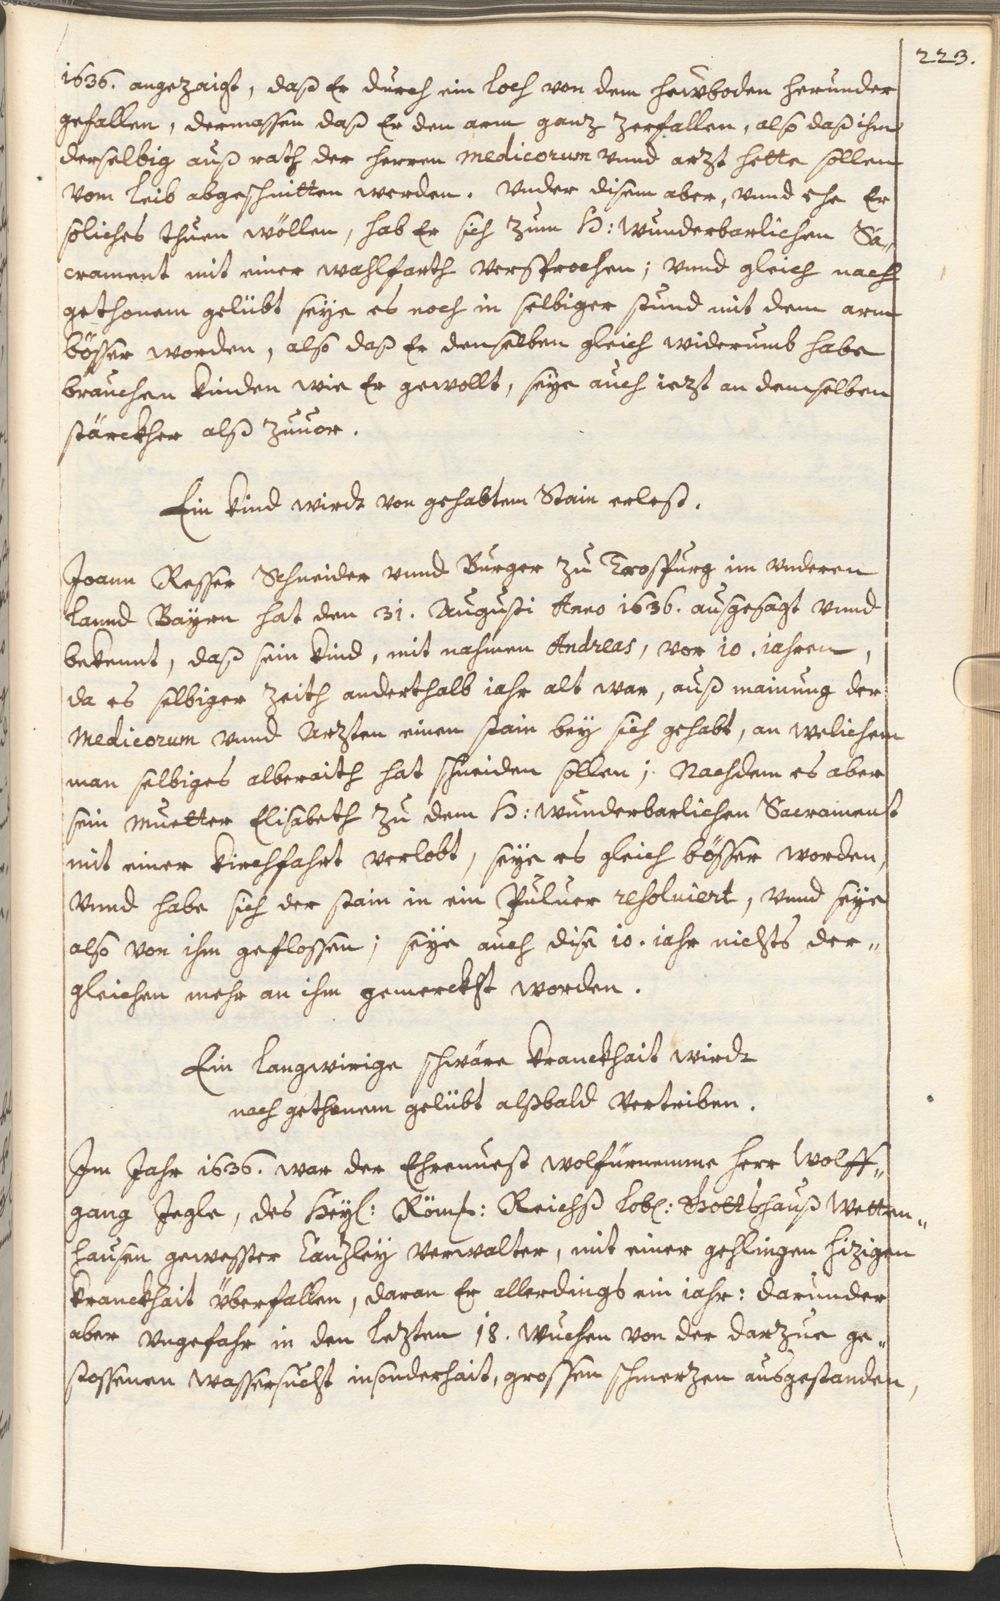 223.
1636. angezaigt, daß Er durch ein loch von dem heüwboden herunder
gefallen, dermassen daß Er den arm ganz zerfallen, also daß ihm
derselbig auß rath der herren Medicorum vnnd arzt hette sollen
vom leib abgeschnitten werden. Vnder disem aber, vnnd ehe Er
soliches thuen wöllen, hab Er sich zum H: Wunderbarlichen Sa„
crament mit einer wahlfarth versprochen; vnnd gleich nach
gethonem gelübt seye es noch in selbiger stund mit dem arm
bösser worden, also daß Er denselben gleich widerumb habe
brauchen kinden wie Er gewollt, seye auch iezt an demselben
stärckher alß zuuor.
Ein kind wirdt von gehabtem Stain erlest.
Joann Resser Schneider vnnd Burger zu Trospurg im vnderen
lannd Bayrn hat den 31. Augusti Anno 1636. ausgesagt vnnd
bekennt, daß sein kind, mit nahmen Andreas, vor 10. iahren,
da es selbiger zeith anderthalb iahr alt war, auß mainung der
Medicorum vnnd Arzten einen stain bey sich gehabt, an welichem
man selbiges alberaith hat schneiden sollen; Nachdem es aber
sein Muetter Elisabeth zu dem H: wunderbarlichen Sacrament
mit einer kirchfahrt verlobt, seye es gleich bösser worden,
vnnd habe sich der stain in ein Puluer resoluiert, vnnd seye
also von ihm geflossen; seye auch dise 10. iahr nichts der„
gleichen mehr an ihm gemerckht worden.
Ein langwirige schwäre kranckhait wirdt
nach gethonem gelübt alßbald vertriben.
Im Jahr 1636. war der Ehrnuest wolfürnemme herr Wolff„
gang Jegle, des Heyl: Röms: Reichß lobl: Gottshauß Wetten„
hausen gewesster Canzley verwalter, mit einer gehlingen hizigen
kranckhait überfallen, daran Er allerdings ein iahr: darunder
aber vngefahr in den letzten 18. wuchen von der darzue ge„
stossenen wassersucht insonderhait, grossen schmerzen ausgestanden,